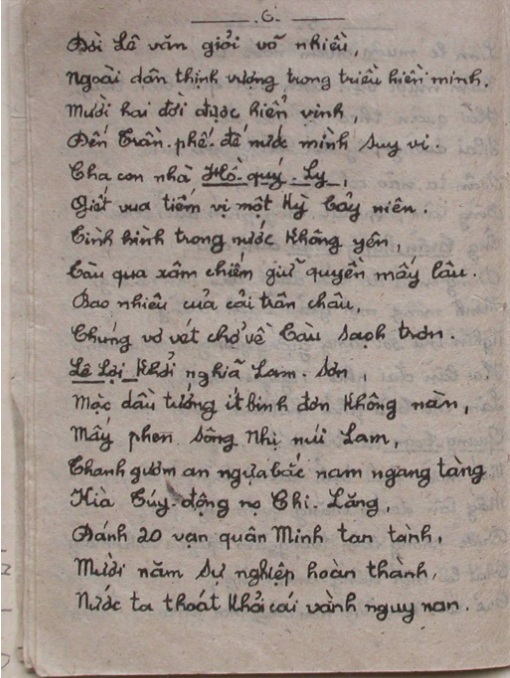 — .6. —
Đời Lê văn giỏi võ nhiều,
Ngoài dân thịnh vượng trong triều hiền minh.
Mười hai đời được hiển vinh,
Đến Trần phế đế nước mình suy vi.
Cha con nhà Hồ quý Ly,
Giết vua tiếm vị một Kỳ bảy niên.
Tình hình trong nước Không yên,
Tàu qua xâm chiếm giữ quyền mấy lâu.
Bao nhiêu của cải trân châu,
Chúng vơ vét chở về Tàu sạch trơn.
Lê Lợi Khởi nghĩa Lam-Sơn,
Mặc dầu tướng ít binh đơn Không nàn,
Mấy phen sông Nhị núi Lam,
Thanh gươm an ngựa bắc nam ngang tàng
Kìa Túy-động nọ Chi-Lăng,
Đánh 20 vạn quân Minh tan tành,
Mười năm sự nghiệp hoàn thành,
Nước ta thoát Khỏi cái vành nguy nan.